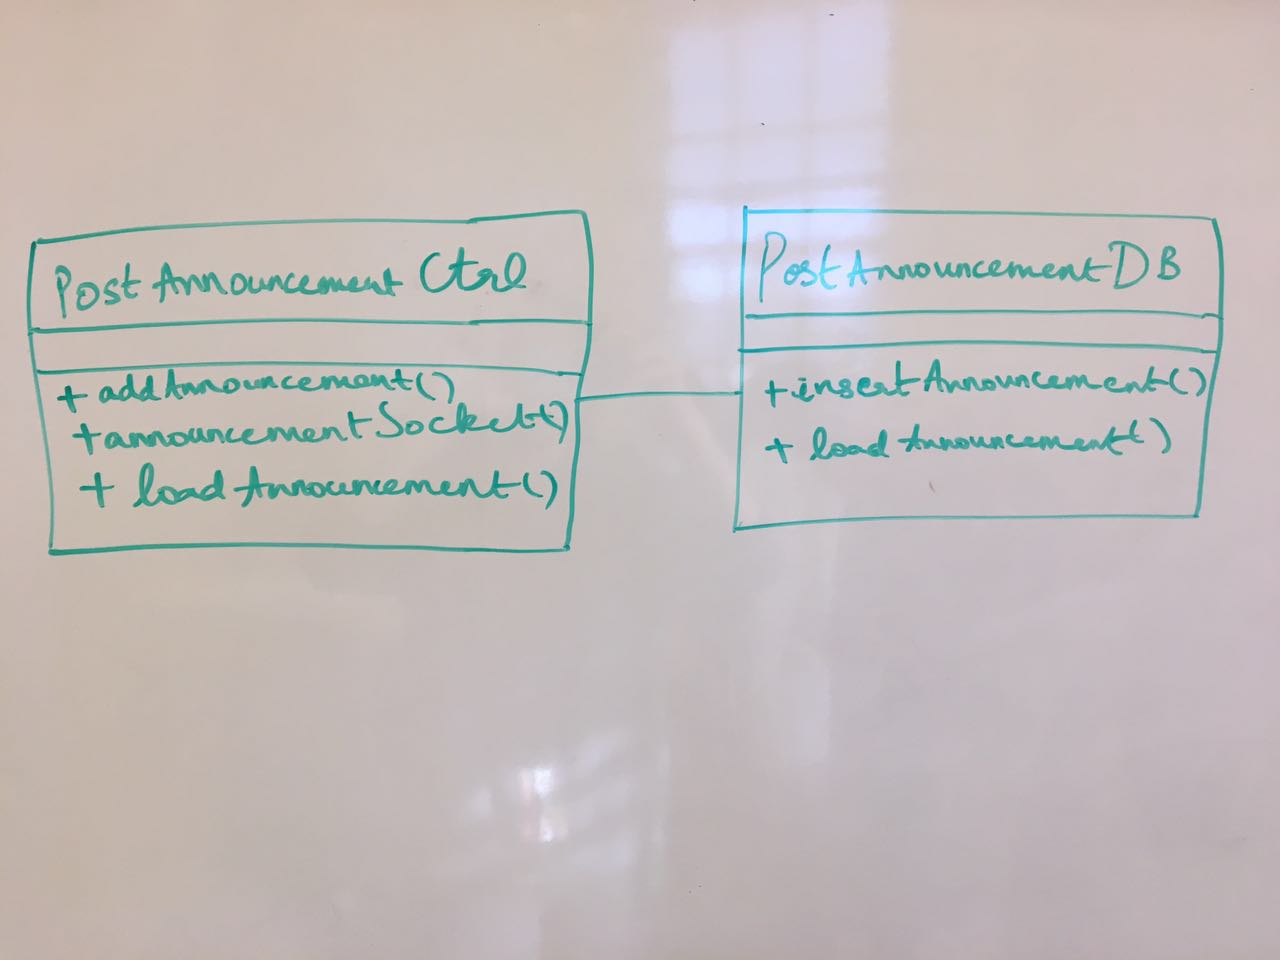 PostAnnouncement Ctrl
+ addAnnouncement()
+announcementSocket()
+ loadAnnouncement()
PostAnnouncementDB
+insertAnnouncement()
+ loadAnnouncement()